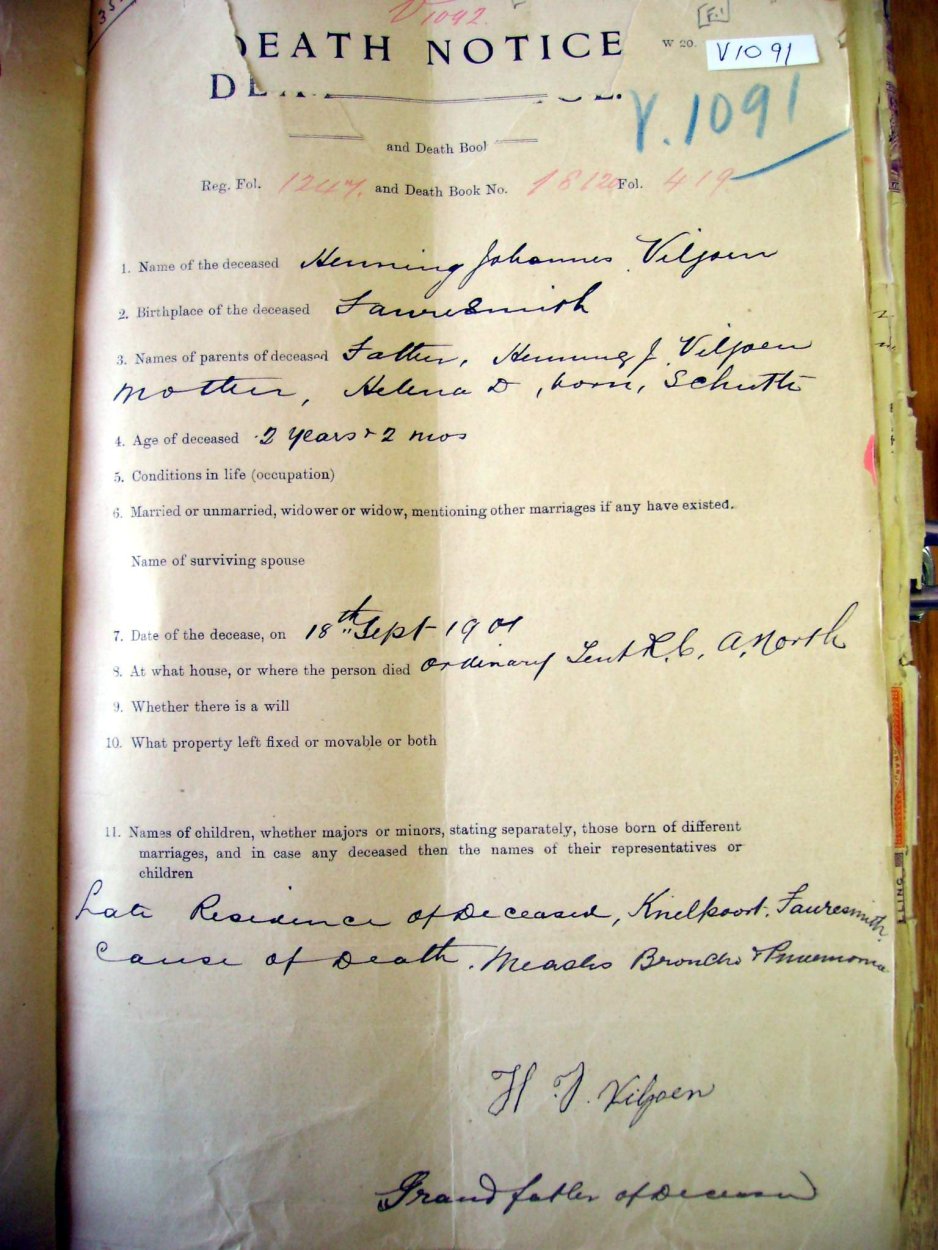 V1092.
[F.1]
DEATH NOTICE
W 20.
V1091
V.1091
and Death Book
Reg. Fol. 1247. and Death Book No. 18120 Fol. 419
1. Name of the deceased Henning Johannes Viljoen
2. Birthplace of the deceased Fauresmith
3. Names of parents of deceased Father, Henning J. Viljoen
Mother, Helena D, born, Schutte
4. Age of deceased 2 years & 2 mos
5. Conditions in life (occupation)
6. Married or unmarried, widower or widow, mentioning other marriages if any have existed.
Name of surviving spouse
7. Date of the decease, on 18th Sept 1901
8. At what house, or where the person died ordinary Tent R.C. A. North
9. Whether there is a will
10. What property left fixed or movable or both
11. Names of children, whether majors or minors, stating separately, those born of different
marriages, and in case any deceased then the names of their representatives or
children
Late Residence of Deceased, Knelpoort. Fauresmith.
Cause of Death. Measles Broncho & Pneumonia
H. J. Viljoen
Grandfather of Deceased